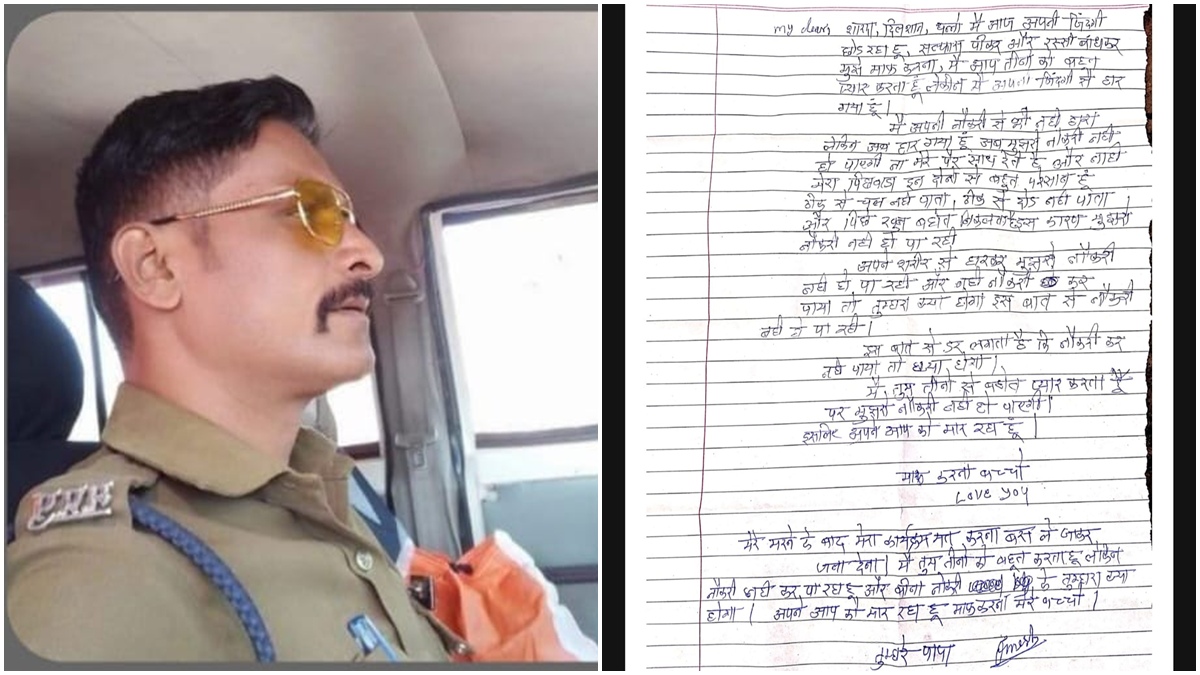 my dear, शारदा, दिलशान, चलो मै आज अपनी जिंदगी
छोड रहा हूँ, सल्फास पीकर और रस्सी बांधकर
मुझे माफ करना, मै आप तीनो को बहूत
प्यार करता हूँ लेकीन मै अपनी जिंदगी से हार
गया हूँ।
मै अपनी नौकरी से भी नही हारा
लेकिन अब हार गया हूँ अब मुझसे नौकरी नही
हो पाएगी ना मेरे पैर साथ देते है और नाही
मेरा पिछवाडा इन दोनो से बहूत परेसान हूँ
ठीक से चल नही पाता, ठीक से दौड नही पाता
और पिछे खून बहोत इस कारण मुझसे
नौकरी नही हो पा रही
अपने शरीर से हारकर मुझसे नौकरी
नही हो पा रही और नही नौकरी कर
पाया तो तुम्हारा क्या होगा इस बात से नौकरी
नही हो पा रही।
इस बात से डर लगता है कि नौकरी कर
नही पाया तो क्या होगा।
मै तुम तीनो से बहोत प्यार करता हूँ
पर मुझसे नौकरी नही हो पाएगी।
इसलिए अपने आप को मार रहा हूँ।
माफ करना बच्चो
Love you
मेरे मरने के बाद मेरा कार्यक्रम मत करना बस ले जाकर
जला देना। मै तुम तीनो से बहूत करता हू लेकिन
नौकरी नही कर पा रहा हू और बीना नौकरी के तुम्हारा क्या
होगा। अपने आप को मार रहा हू माफ करना मेरे बच्चो।
तुम्हारे पापा